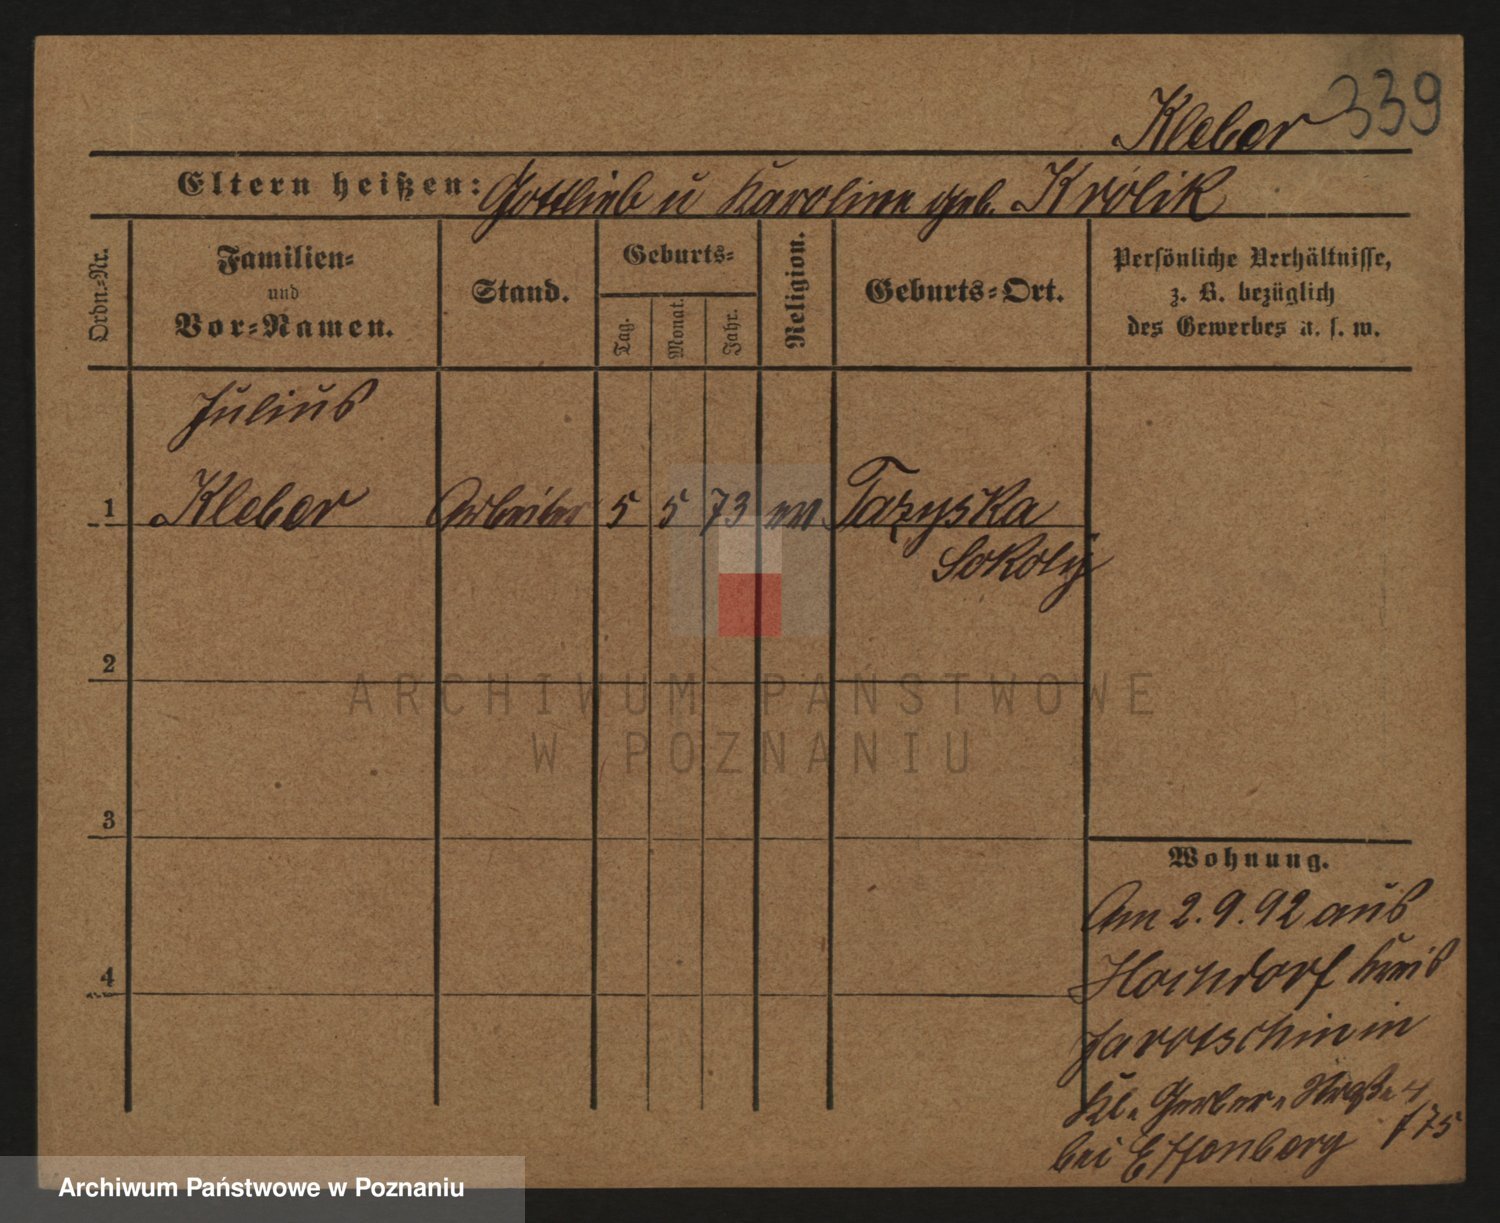 Kleber 339
Eltern heißen: Gottlieb u Karoline geb. Krolik
Ordn.-Nr.
Familien-
und
Vor-Namen.
Stand.
Geburts-
Tag.
Monat.
Jahr.
Religion.
Geburts-Ort.
Persönliche Verhältnisse,
z. B. bezüglich
des Gewerbes u. s. w.
Julius
1 Kleber Arbeiter 5 5 73
Sokoly
2
3
4
Wohnung.
Am 2.9.92 aus
Hochdorf Kreis
Jarotschin in
Kl. Gerber-Straße 4
bei Effenberg f 75
ARCHIWUM PAŃSTWOWE
W POZNANIU
Archiwum Państwowe w Poznaniu